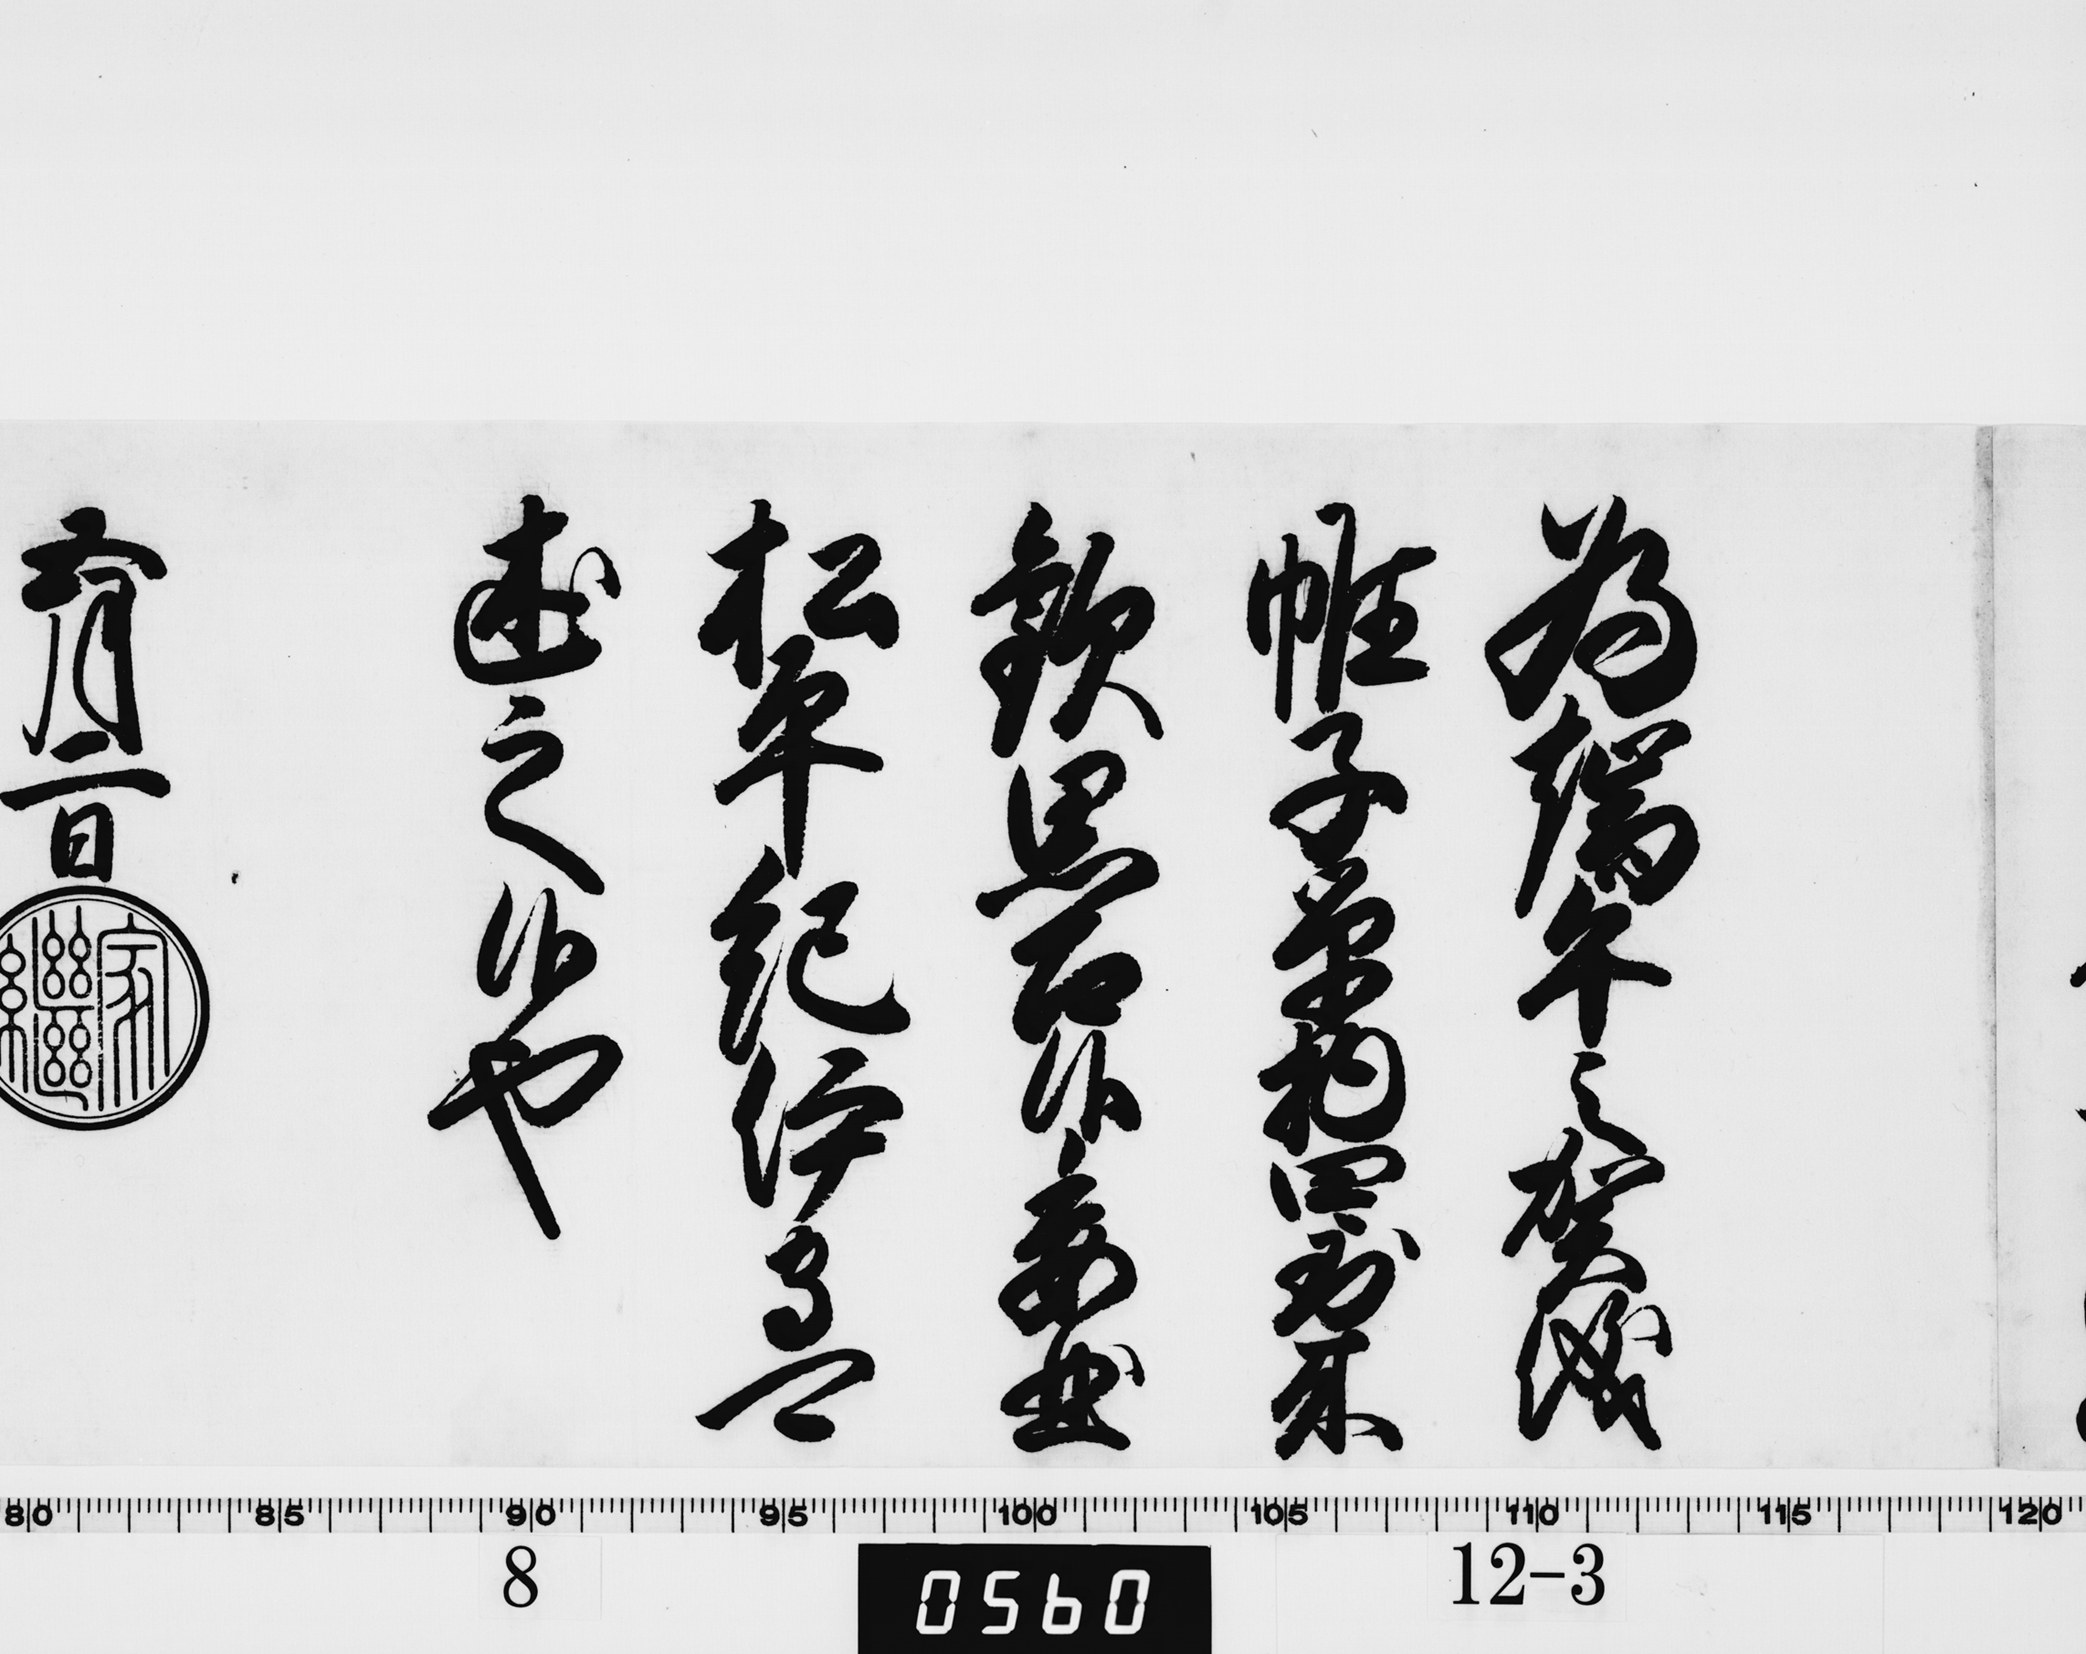 為端午之賀儀
帷子単物四到来
歓思召候委曲
松平紀伊守可
述之候也
五月二日
家繼
80 85 90 95 100 105 110 115 120
8
0560
12-3